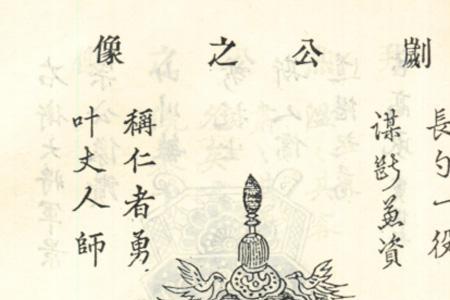 劌公之像
長勺一役
謀斷兼資
稱仁者勇
叶丈人師